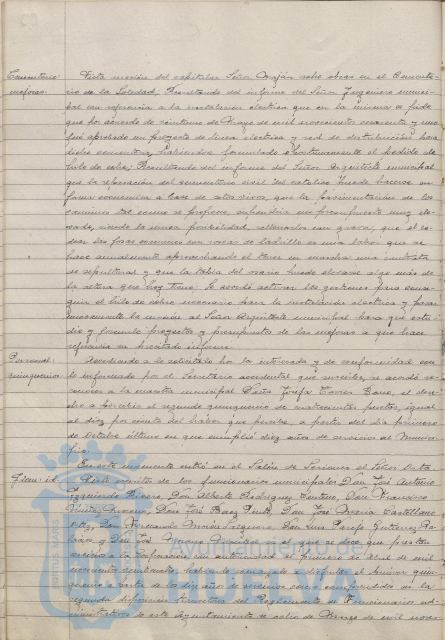 Cementerio: Vista moción del capitular Señor Maján sobre obras en el Cemente-
mejoras. rio de la Soledad; Resultando del informe del Señor Ingeniero munici-
pal con referencia a la instalación eléctrica que en la misma se pide
que por acuerdo de veintiuno de Mayo de mil novecientos cuarenta y uno
fué aprobado un proyecto de línea eléctrica y red de distribución para
dicho cementerio, habiéndose formulado oportunamente el pedido de
hilo de cobre; Resultando del informe del Señor Arquitecto municipal
que la separación del cementerio civil del católico puede hacerse en
forma económica a base de alto vivos, que la pavimentación de los
caminos tal como se propone, supondría un presupuesto muy ele-
vado, siendo la única posibilidad, rellenarlos con grava, que el
las fosas comunes con roscas de ladrillo es una labor que se
hace anualmente aprovechando el tener en marcha una contrata
de sepulturas y que la tabla del osario puede elevarse algo más de
la altura que hoy tiene; Se acordó activar las gestiones para conse-
guir el hilo de cobre necesario para la instalación eléctrica y pasar
nuevamente la moción al Señor Arquitecto municipal para que estu-
die y formule proyectos y presupuestos de las mejoras a que hace
referencia su precitado informe.
Personal: Accediendo a lo solicitado por la interesada y de conformidad con
quinquenios. lo informado por el Secretario accidental que suscribe, se acordó re-
conocer a la maestra municipal Doña Josefa Torres Cano, el dere-
cho a percibir el segundo quinquenio de cuatrocientas pesetas, igual
al diez por ciento del haber que percibe, a partir del día primero
de Octubre último en que cumplió diez años de servicios al Munici-
pio.
En este momento entró en el Salón de Sesiones el Señor
Idem: id. Visto escrito de los funcionarios municipales Don José Antonio
Izquierdo Rivero, Don Alberto Rodríguez Don Francisco
Moreno, Don José Báez Don José María Castellano
Don Fernando Morón Don Luis Pérez Gutiérrez
y Don José Moreno en el que se dice que prestan
servicio a la Corporación con anterioridad al primero de Abril de mil
novecientos habiendo comenzado a disfrutar el primer quin-
quenio a partir de los diez años de servicios como comprendidos en la
segunda disposición transitoria del Reglamento de Funcionarios ad-
ministrativos de este Ayuntamiento de ocho de Marzo de mil nove-
PORTUS MARIS
Ayuntamiento de
HUELVA